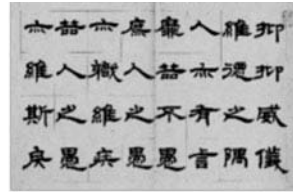 抑抑威儀
維德之隅
人亦有言
靡哲不愚
庶人之愚
亦職維疾
哲人之愚
亦維斯戾